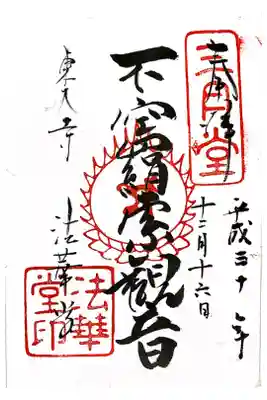 奉拝
三月堂
平成三十年
十二月十六日
不空羂索観音
東大寺
法華堂
法華堂印